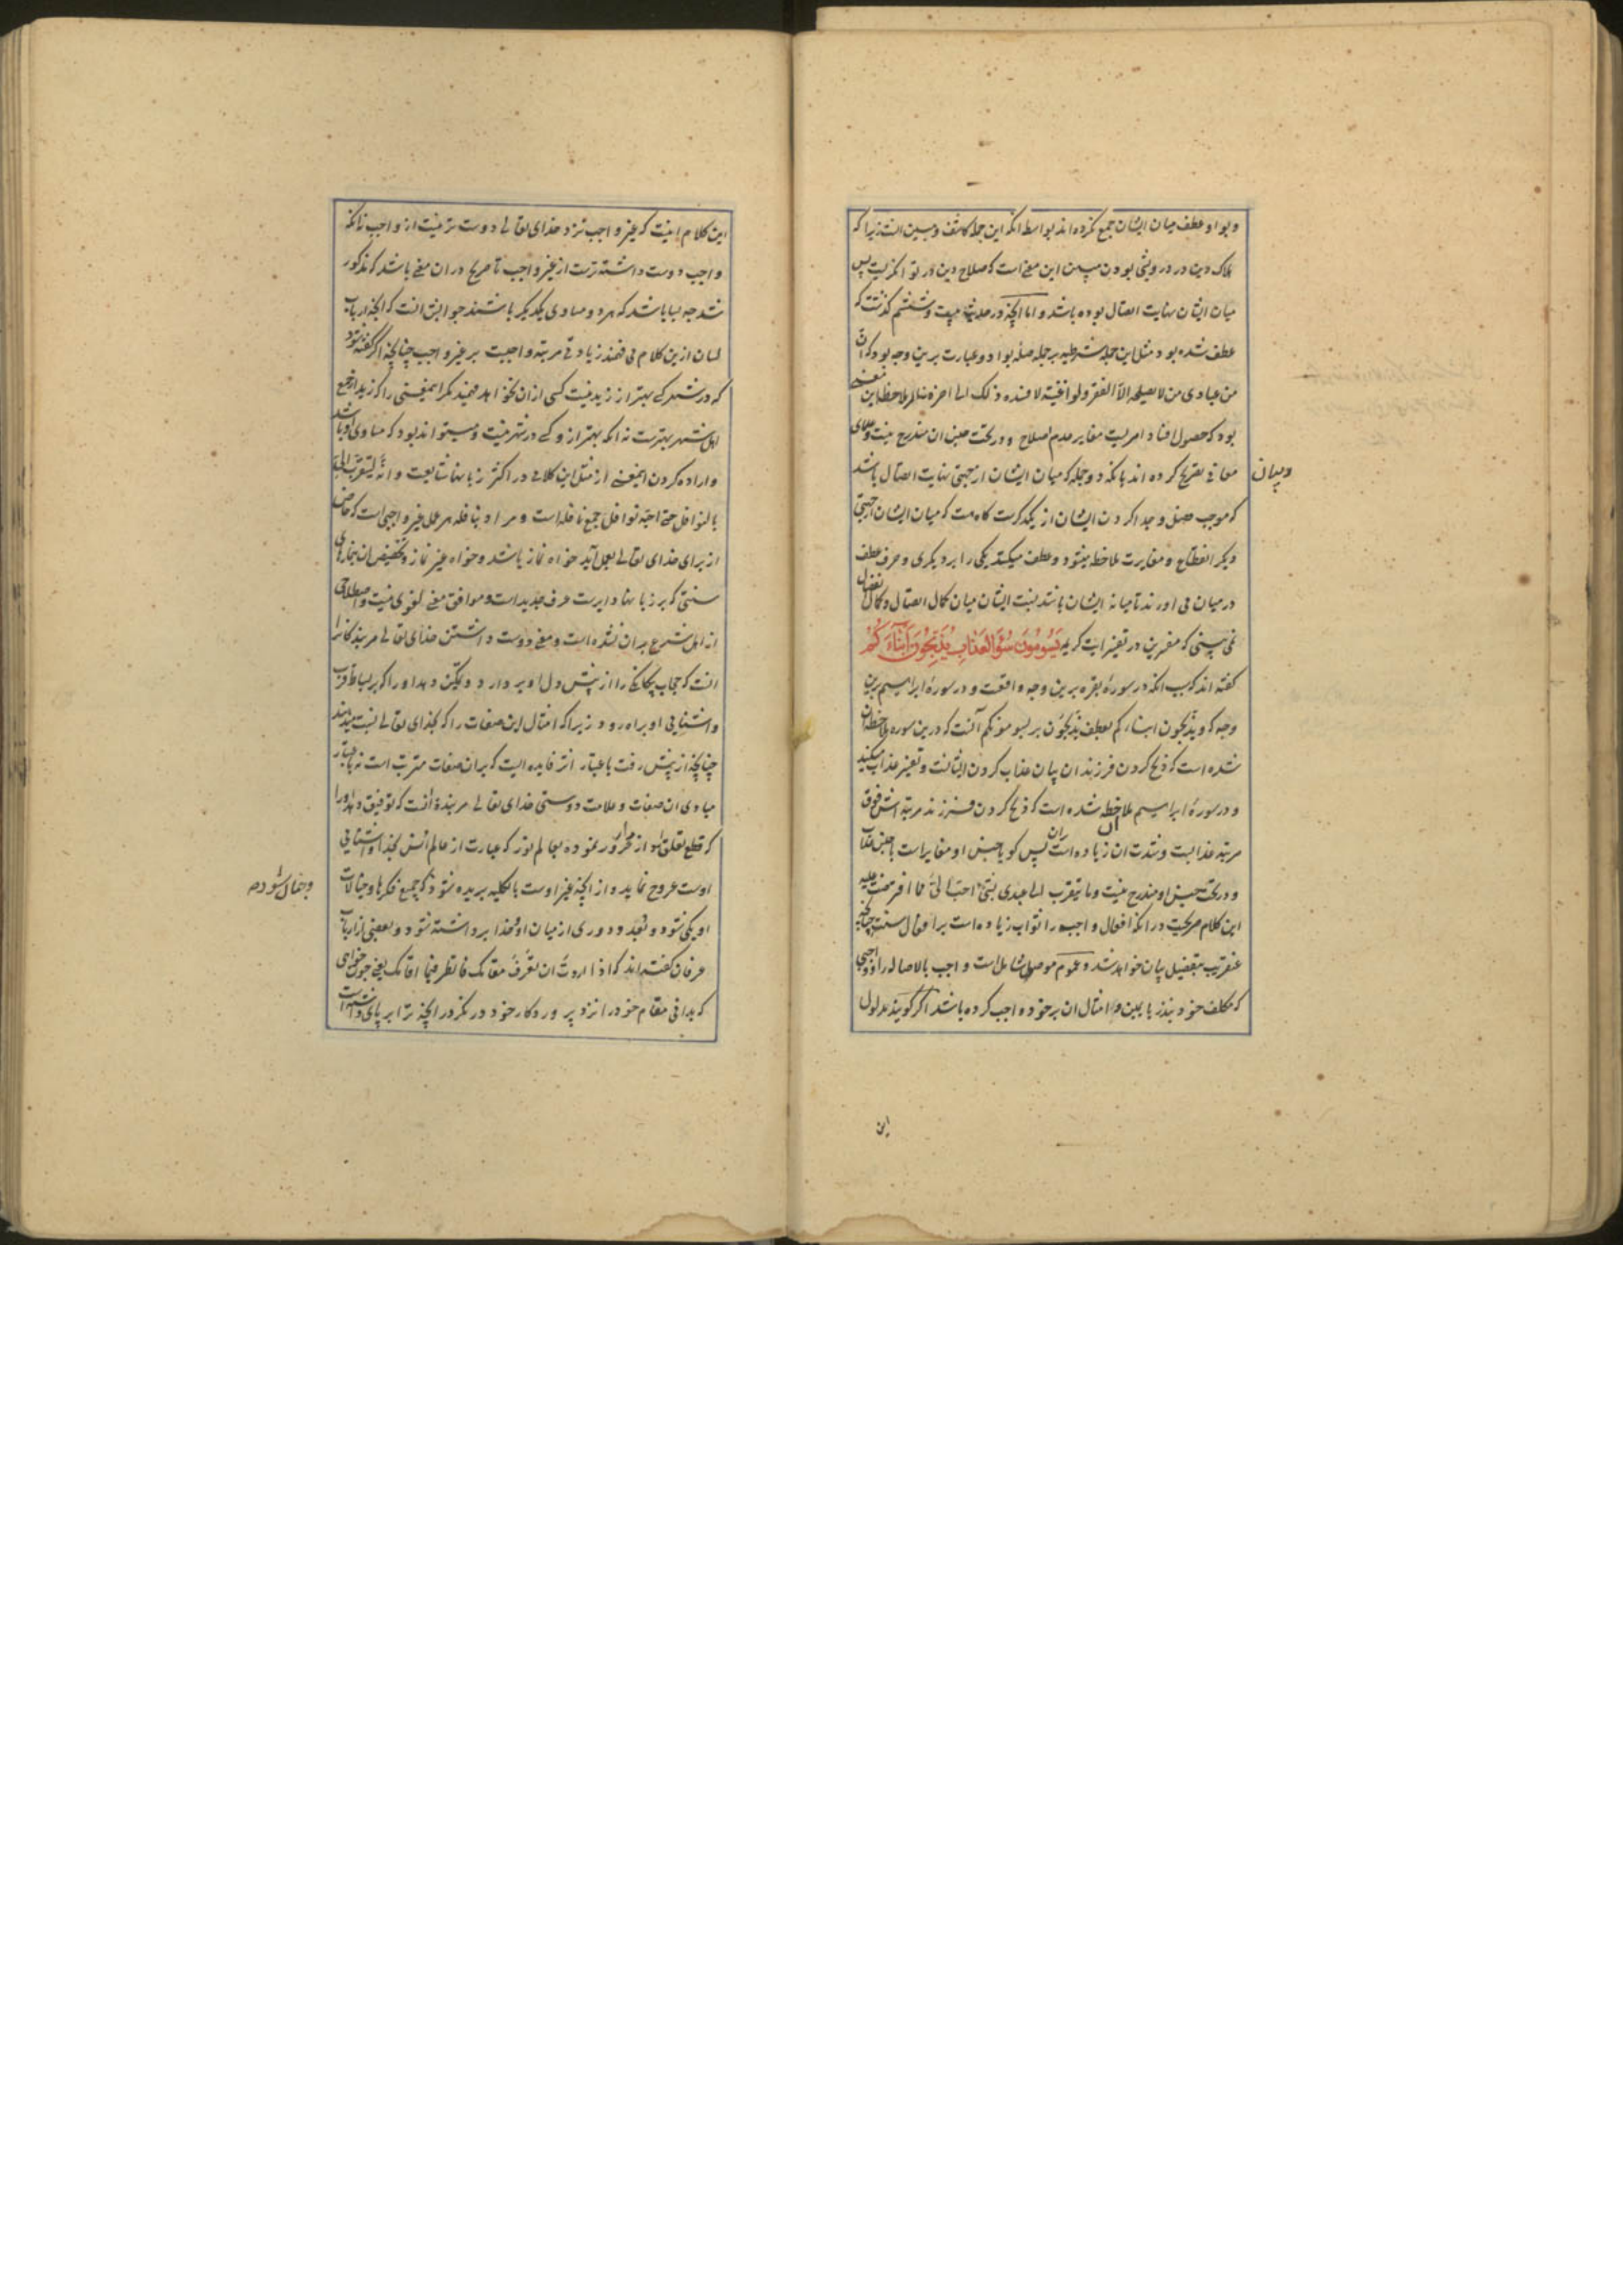 وبواو عطف میان ایشان جمع نکرده اند بواسطه انکه این جمله کاشف و مبین انست زیرا که
هلاک دین در درویشی بودن مبین این معنی است که صلاح دین در توانکریست پس
میان ایشان نهایت اتصال بوده باشد و اما آنچه در حدیث بیست و ششم کذشت که
عطف شده بود مثل این جمله شرطیه بر جمله صله بواو و عبارت برین وجه بود که ان
من عبادی من لا یصلحه الا الفقر ولو اغنیته لافسده ذلک الی اخره بنابر ملاحظه این معنی
بود که حصول افساد امریست مغایر عدم اصلاح و در تحت جنس ان مندرج نیست و علمای
معانی تصریح کرده اند بانکه دو جمله که میان ایشان از جهتی نهایت اتصال باشد
وبیان
که موجب فصل و جدا کردن ایشان از یکدکرست کاه هست که میان ایشان از جهتی
دیکر انقطاع و مغایرت ملاحظه میشود و عطف میکنند یکی را بر دیکری و حرف عطف
در میان می اورند تا میانه ایشان باشد نسبت ایشان میان کمال اتصال و کمال انفصال
نمی بینی که مفسرین در تفسیر ایت کریمه یَسُومُونَ سُوٓءَ العَذَابِ یُذَبِّحُونَ اَبْنَآءَکُمْ
کفته اند که سبب انکه در سورهٔ بقره برین وجه واقعست و در سورهٔ ابراهیم برین
وجه که ویذبحون ابناءکم بعطف یذبحون بر یسومونکم آنست که درین سوره ملاحظه ان
شده است که ذبح کردن فرزندان بیان عذاب کردن ایشانست و تفسیر عذاب میکند
و در سورهٔ ابراهیم ملاحظه شده است که ذبح کردن فرزند مرتبه اش فوق
مرتبه عذابست و شدت ان زیاده از انست پس کویا جنس او مغایر است با جنس عذاب
و در تحت جنس او مندرج نیست وما یتقرب الی عبدی بشیء احب الی مما افترضت علیه
این کلام صریحست در انکه افعال واجبه را ثواب زیاده است بر افعال سنت چنانچه
عنقریب بتفصیل بیان خواهد شد و عموم موصول شامل است واجب بالاصاله را و واجبی
که مکلف خود بنذر یا یمین و امثال ان بر خود واجب کرده باشد اکر کویند مدلول
این
این کلام اینست که غیر واجب نزد خدای تعالی دوست تر نیست از واجب نه انکه
واجب دوست داشته ترست از غیر واجب تا صریح در ان معنی باشد که مذکور
شد چه بسا باشد که هر دو مساوی یکدیکر باشند جوابش انست که آنچه ارباب
لسان ازین کلام می فهمند زیادتی مرتبه واجبست بر غیر واجب چنانچه اکر کفته شود
که در شهر کسی بهتر از زید نیست کسی ازان نخواهد فهمید مکر همین معنی را که زید از جمیع
اهل شهر بهترست نه انکه بهتر از و کسی در شهر نیست و میتواند بود که مساوی او باشد
و اراده کردن این معنی از مثل این کلامی در اکثر زبانها شایعست و انه لیتقرب الی
بالنوافل حتی احبه نوافل جمع نافله است و مراد بنافله هر عمل غیر واجبی است که خالص
از برای خدای تعالی بعمل آید خواه نماز باشد و خواه غیر نماز و تخصیص ان بنمازهای
سنتی که بر زبانها دایرست عرف جدید است و موافق معنی لغوی نیست و اصطلاحی
از اهل شرع بران نشده است و معنی دوست داشتن خدای تعالی مر بندکانرا
انست که حجاب بیکانکی را از پیش دل او بردارد و تمکین دهد او را که بر بساط قرب
و اشنایی او براه رود زیرا که امثال این صفات را که بخدای تعالی نسبت میدهند
چنانچه از پیش رفت باعتبار اثر فایده ایست که بران صفات مترتب است نه باعتبار
مبادی ان صفات و علامت دوستی خدای تعالی مر بنده انست که توفیق دهد او را
که قطع تعلق او از دار غرور نموده بعالم نور که عبارت از عالم انس بخدا و اشنایی
اوست عروج نماید و از آنچه غیر اوست بالکلیه بریده شود که جمیع فکرها و خیالات
او یکی شود و بعد و دوری از میان او و خدا برداشته شود و بعضی از ارباب
عرفان کفته اند که اذا اردت ان تعرف مقامک فانظر فیما اقامک یعنی چون خواهی
که بدانی مقام خود را نزد پروردکار خود در نکر در آنچه ترا بر پای داشته است